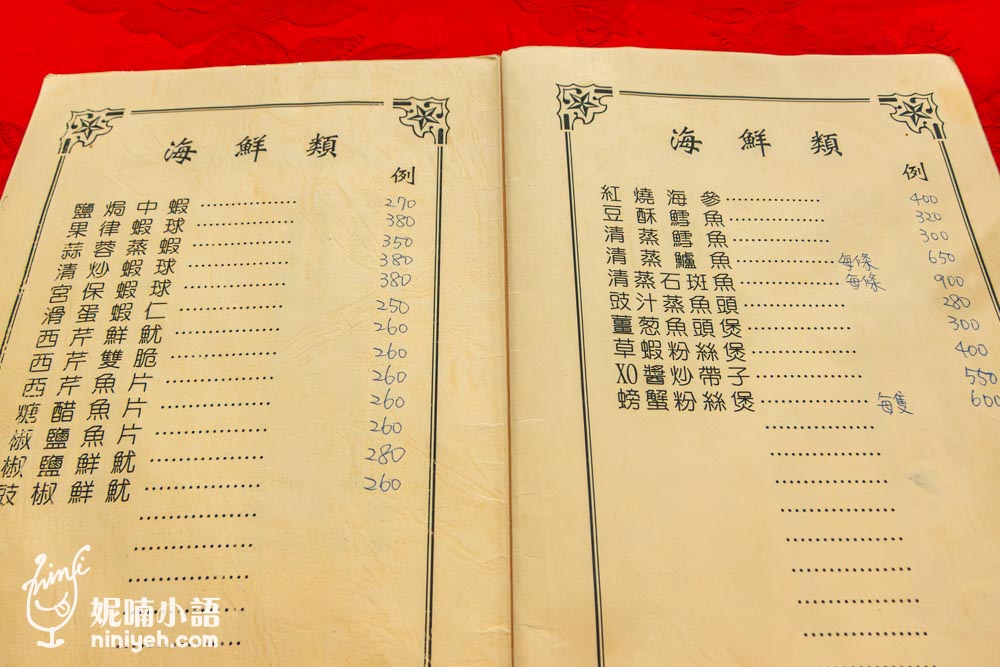 海鮮類
例
鹽焗中蝦 270
果律蝦球 380
蒜蓉蒸蝦 350
清炒蝦球 380
宮保蝦球 380
滑蛋蝦仁 250
西芹鮮魷 260
西芹雙脆 260
西芹魚片 260
糖醋魚片 260
椒鹽魚片 260
椒鹽鮮魷 280
豉椒鮮魷 260
海鮮類
例
紅燒海參 400
豆酥鱈魚 320
清蒸鱈魚 300
清蒸鱸魚 每條 650
清蒸石斑魚 每條 900
豉汁蒸魚頭 280
薑葱魚頭煲 300
草蝦粉絲煲 400
XO醬炒帶子 550
螃蟹粉絲煲 每隻 600
ninfi
妮喃小語
niniyeh.com